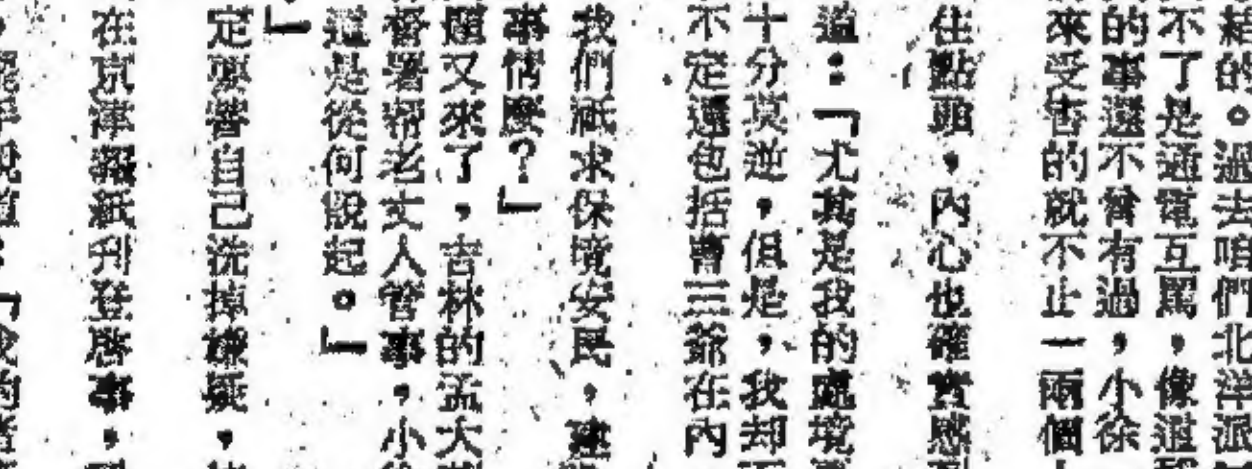 結的。過去咱們北洋派
不了是通電互罵,像這
的事還不曾有過,小徐
來受害的就不止一兩個
住點頭,內心也確實感到
道:「尤其是我的處境
十分莫逆,但是,我却
不定還包括曹三爺在內
我們祇求保境安民,建
事情麼?」
題又來了,吉林的孟大
督署幫老丈人管事,小
這是從何說起。」
」
定要替自己洗掉嫌疑,
在京津報紙刊登啓事,
說道:「我